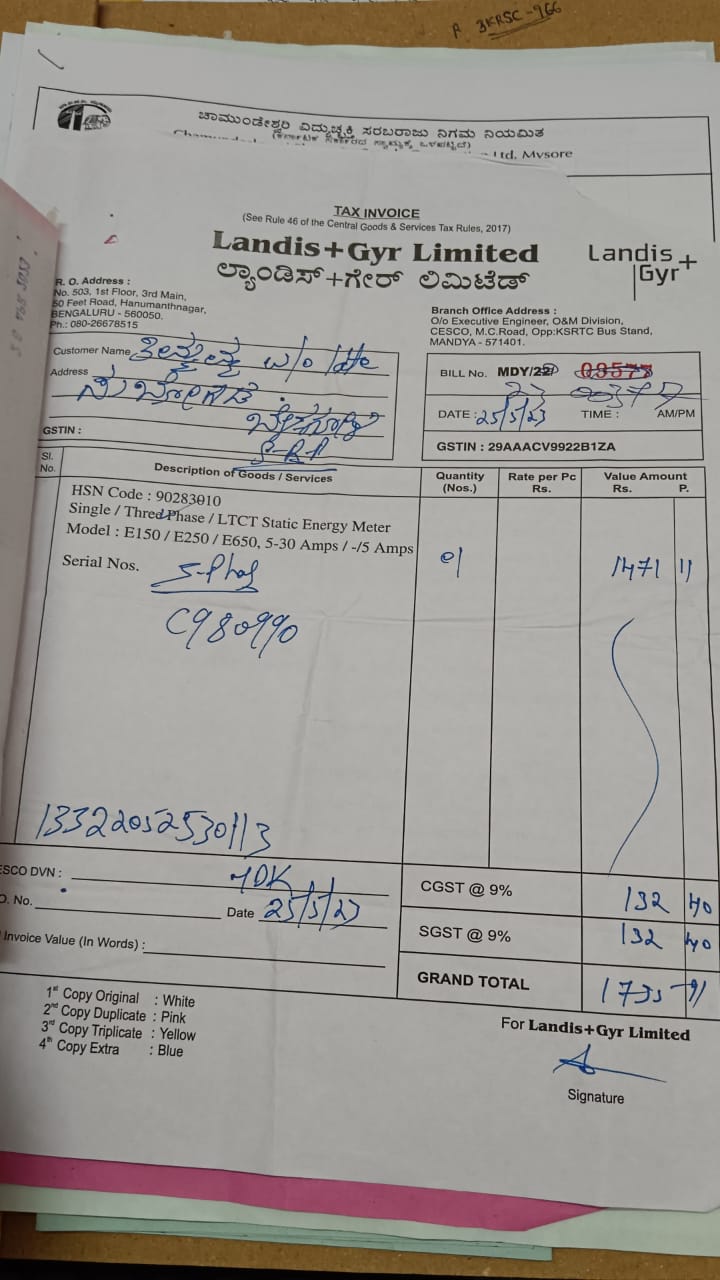 P 3KRSC-966
ಚಾಮುಂಡೇಶ್ವರಿ ವಿದ್ಯುಚ್ಛಕ್ತಿ ಸರಬರಾಜು ನಿಗಮ ನಿಯಮಿತ
(ಕರ್ನಾಟಕ ಸರ್ಕಾರದ ಸ್ವಾಮ್ಯಕ್ಕೆ ಒಳಪಟ್ಟಿದೆ)
Ltd, Mysore
TAX INVOICE
(See Rule 46 of the Central Goods & Services Tax Rules, 2017)
Landis+Gyr Limited
ಲ್ಯಾಂಡಿಸ್+ಗೇರ್ ಲಿಮಿಟೆಡ್
Landis+
Gyr
R. O. Address :
No. 503, 1st Floor, 3rd Main,
50 Feet Road, Hanumanthnagar,
BENGALURU - 560050.
Ph.: 080-26678515
Branch Office Address :
O/o Executive Engineer, O&M Division,
CESCO, M.C.Road, Opp:KSRTC Bus Stand,
MANDYA - 571401.
Customer Name w/o late
Address
GSTIN :
BILL No. MDY/22 03573
23
DATE : 25/5/23 TIME : AM/PM
GSTIN : 29AAACV9922B1ZA
Sl. No. Description of Goods / Services Quantity (Nos.) Rate per Pc Rs. Value Amount Rs. P.
HSN Code : 90283010
Single / Three Phase / LTCT Static Energy Meter
Model : E150 / E250 / E650, 5-30 Amps / -/5 Amps
Serial Nos. 01 1471 11
C980990
13322052530113
ESCO DVN : MDK
O. No. Date 25/5/23
CGST @ 9% 132 40
SGST @ 9% 132 40
Invoice Value (In Words) :
GRAND TOTAL 1735 91
1st Copy Original : White
2nd Copy Duplicate : Pink
3rd Copy Triplicate : Yellow
4th Copy Extra : Blue
For Landis+Gyr Limited
Signature